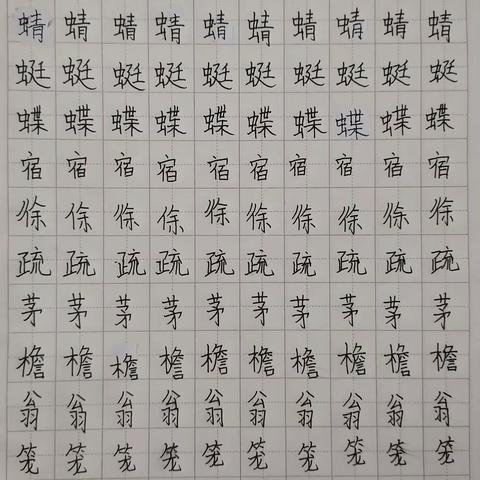 蜻蜻蜻蜻蜻蜻蜻蜻蜻蜻
蜓蜓蜓蜓蜓蜓蜓蜓蜓蜓
蝶蝶蝶蝶蝶蝶蝶蝶蝶蝶
宿宿宿宿宿宿宿宿宿宿
徐徐徐徐徐徐徐徐徐徐
疏疏疏疏疏疏疏疏疏疏
茅茅茅茅茅茅茅茅茅茅
檐檐檐檐檐檐檐檐檐檐
翁翁翁翁翁翁翁翁翁翁
笼笼笼笼笼笼笼笼笼笼